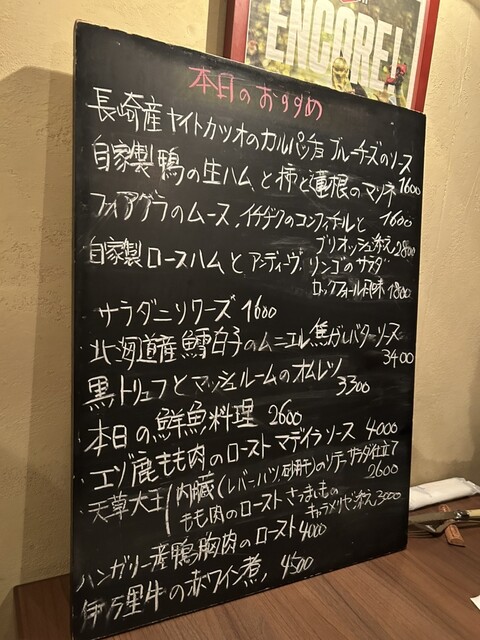 ENCORE!
本日のおすすめ
長崎産ヤイトカツオのカルパッチョ ブルーチーズのソース
1600
自家製鴨の生ハムと柿と蓮根のマリネ
1600
フォアグラのムース、イチヂクのコンフィチュールと
ブリオッシュ添え 2800
自家製ロースハムとアンディーヴ、リンゴのサラダ
ロックフォール風味 1800
サラダニソワーズ 1600
北海道産鱈白子のムニエル 焦がしバターソース
3400
黒トリュフとマッシュルームのオムレツ
3300
本日の鮮魚料理 2600
エゾ鹿もも肉のロースト マデイラソース 4000
天草大王 内臓(レバー・ハツ・砂肝)のソテー サラダ仕立て
2600
もも肉のロースト さつまいもの
キャラメリゼ添え 3000
ハンガリー産鴨胸肉のロースト 4000
伊万里牛の赤ワイン煮 4500